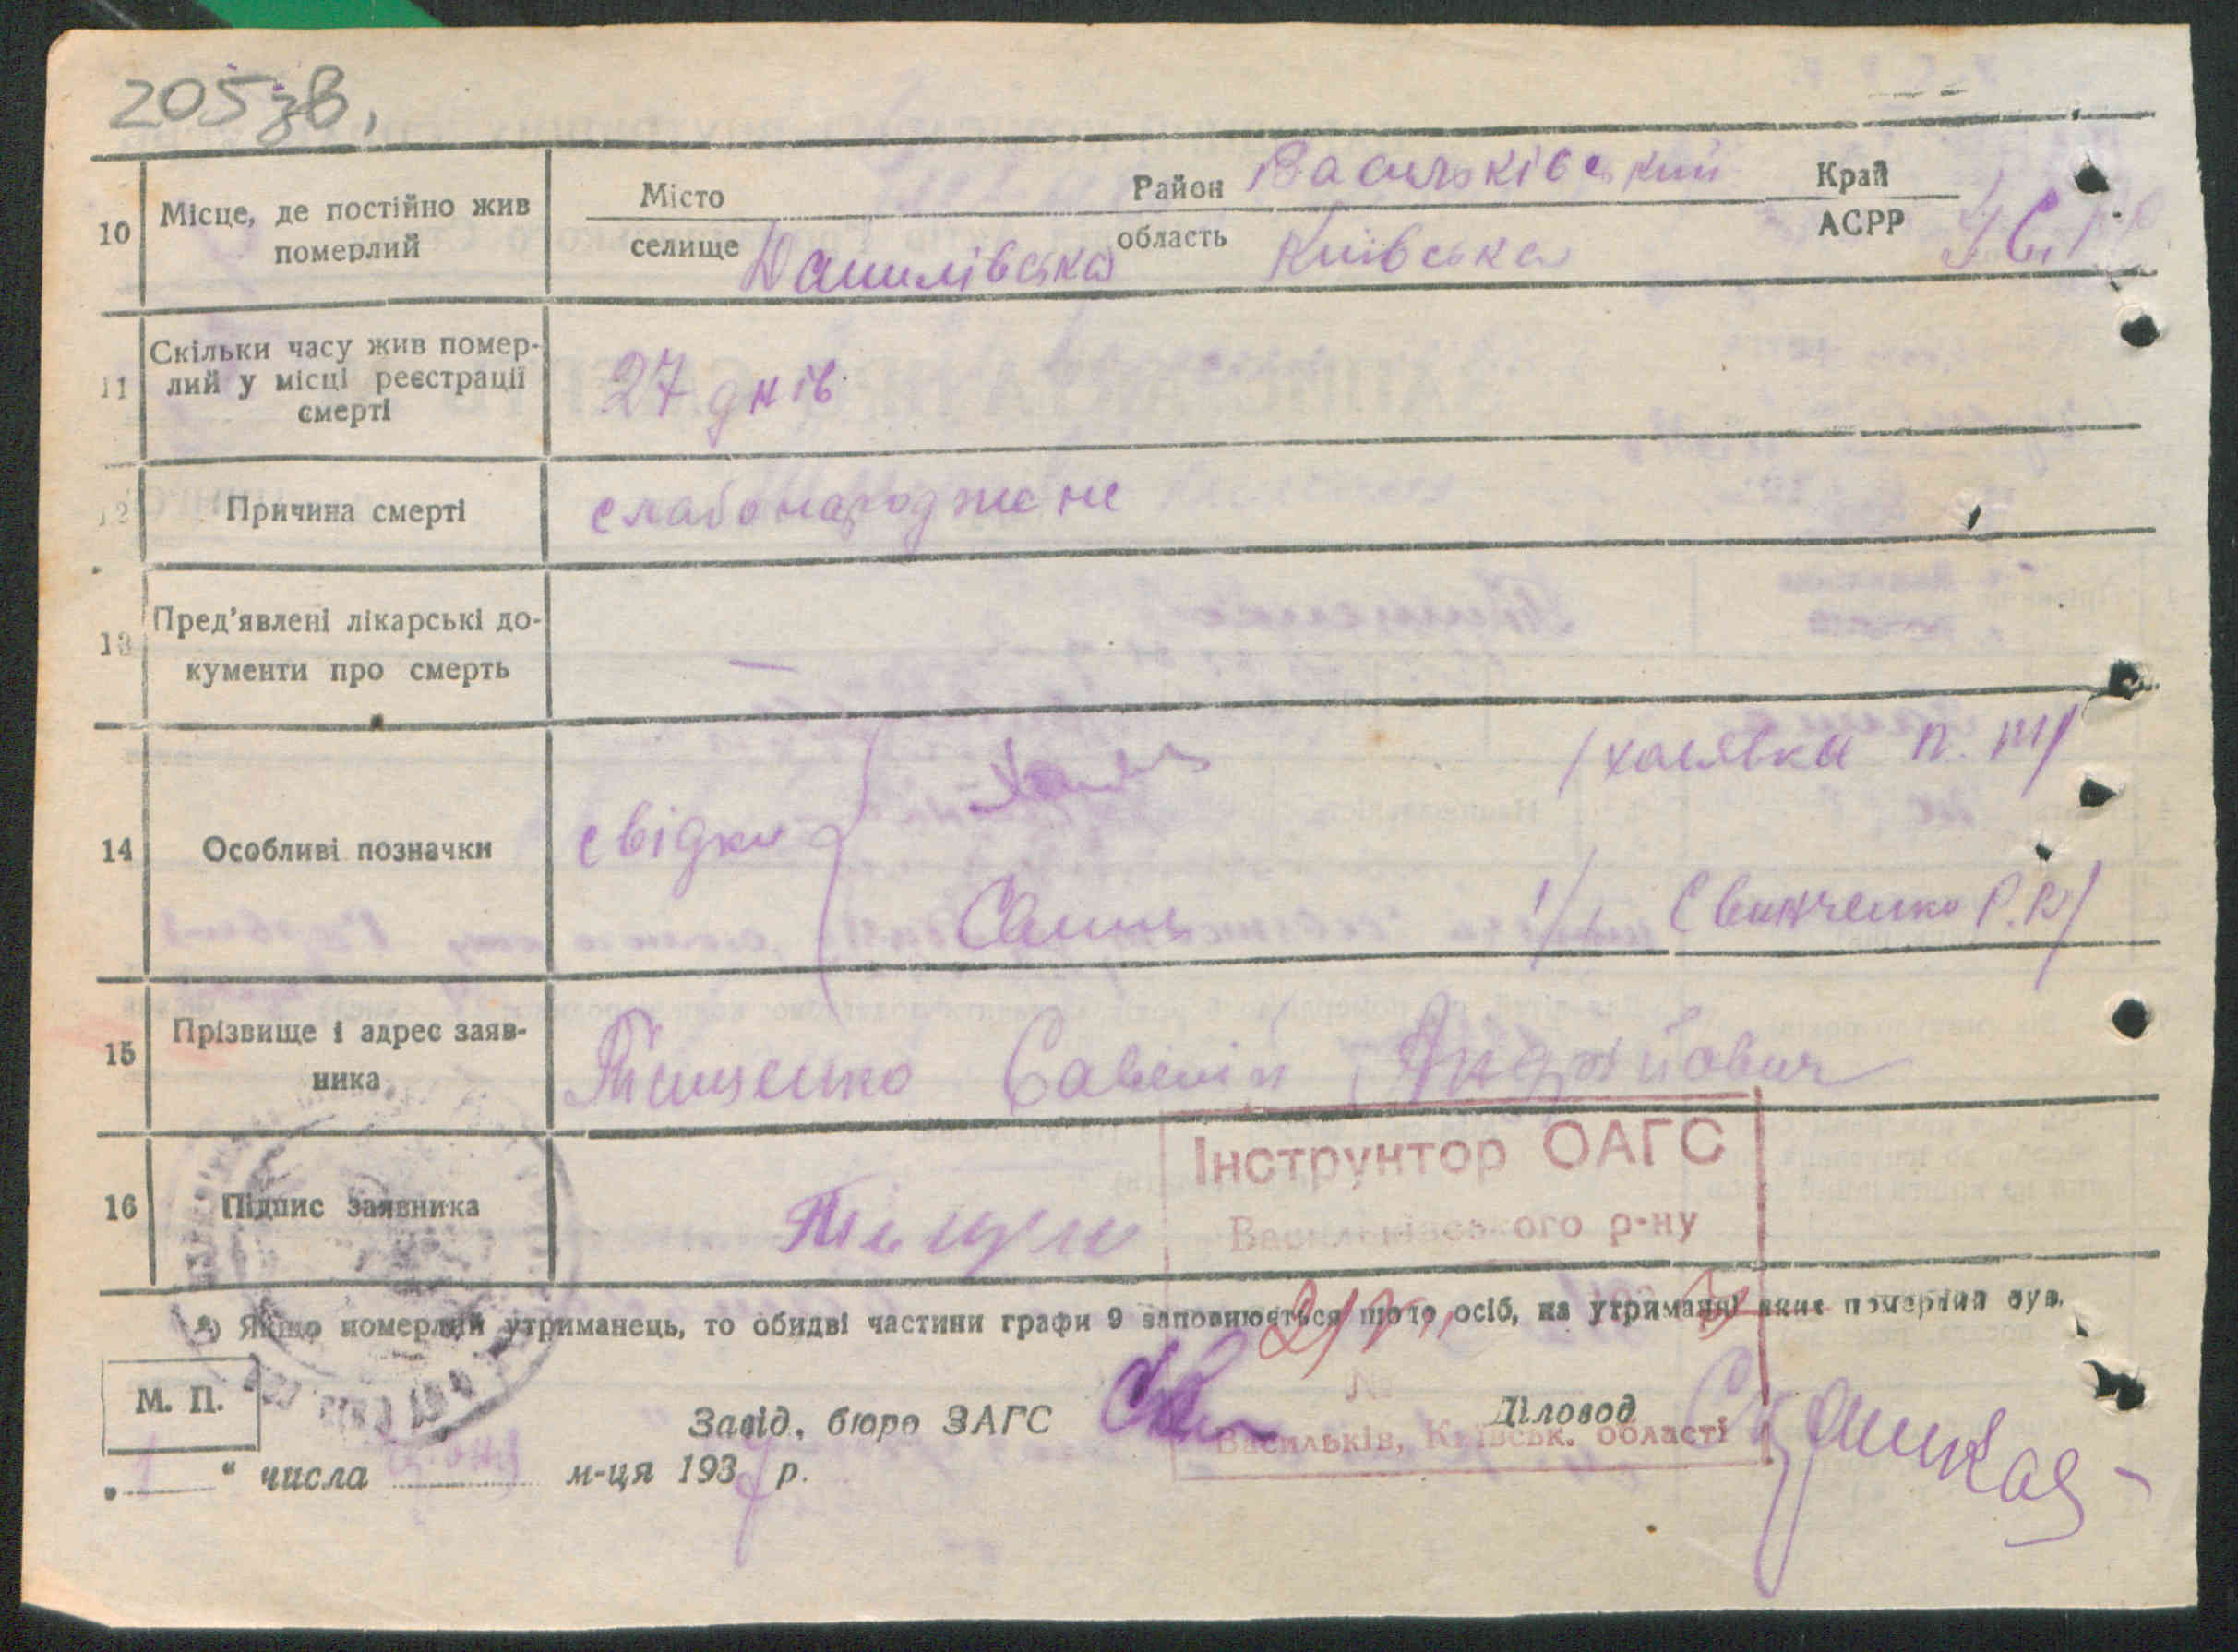 205зв,
10 Місце, де постійно жив померлий
Місто Район Васильківський Край
селище Данилівська область Київська АСРР УСРР
11 Скільки часу жив померлий у місці реєстрації смерті
27 днів
12 Причина смерті слабонароджене
13 Пред'явлені лікарські документи про смерть —
14 Особливі позначки
свідки
/халявка п. м/
/Свинченко Р. К/
15 Прізвище і адрес заявника
Тищенко Савелій Андрійович
16 Підпис заявника
Інструктор ОАГС
Васильківського р-ну
*) Якщо померлий утриманець, то обидві частини графи 9 заповнюється щодо осіб, на утриманні яких померлий був.
№
М. П.
Завід. бюро ЗАГС Діловод
Васильків, Київськ. області
„ 1 “ числа м-ця 1937 р.